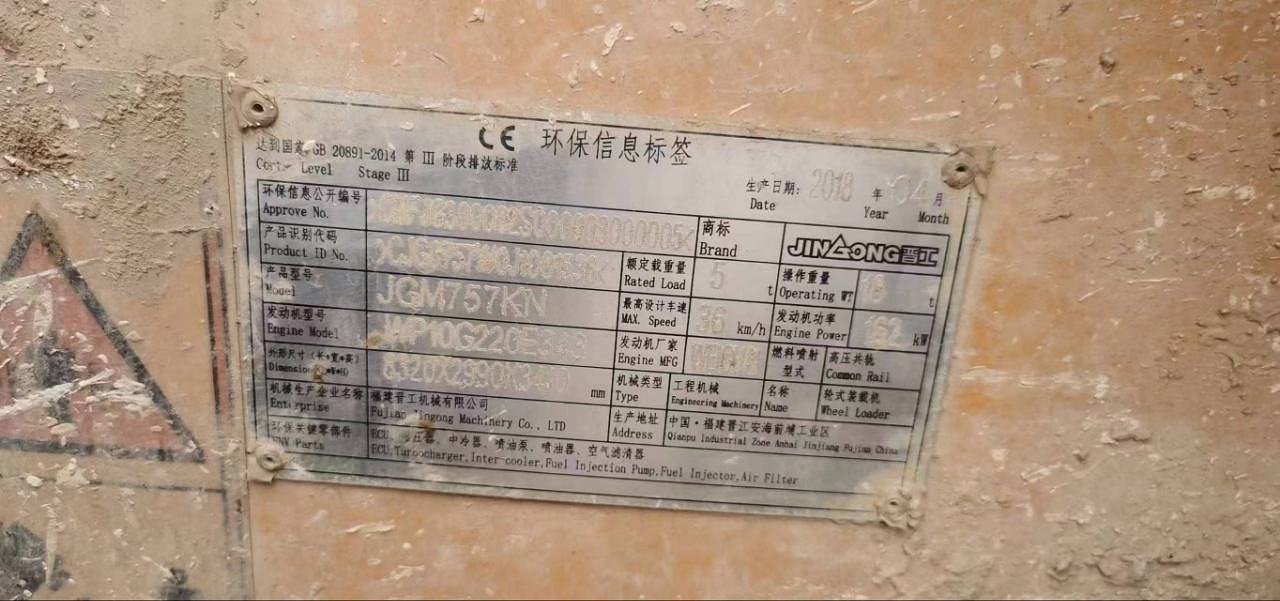 CE 环保信息标签
达到国家 GB 20891-2014 第 III 阶段排放标准
Level Stage III
生产日期: 2018 年 04 月
Date Year Month
环保信息公开编号
Approve No.
商标
Brand
JINGONG晋工
产品识别代码
Product ID No.
额定载重量 5 t
Rated Load
操作重量 t
Operating WT
产品型号 JGM757KN
Model
最高设计车速 36 km/h
MAX. Speed
发动机功率 162 kW
Engine Power
发动机型号
Engine Model
发动机厂家
Engine MFG
燃料喷射型式
高压共轨
Common Rail
外形尺寸 (长*宽*高) mm
机械类型
Type
工程机械
Engineering Machinery
名称
Name
轮式装载机
Wheel Loader
机械生产企业名称
Enterprise
福建晋工机械有限公司
Fujian Jingong Machinery Co., LTD
生产地址
Address
中国·福建晋江安海前埔工业区
Qianpu Industrial Zone Anhai Jinjiang Fujian China
环保关键零部件
ENV Parts
ECU、增压器、中冷器、喷油泵、喷油器、空气滤清器
ECU,Turbocharger,Inter-cooler,Fuel Injection Pump,Fuel Injector,Air Filter